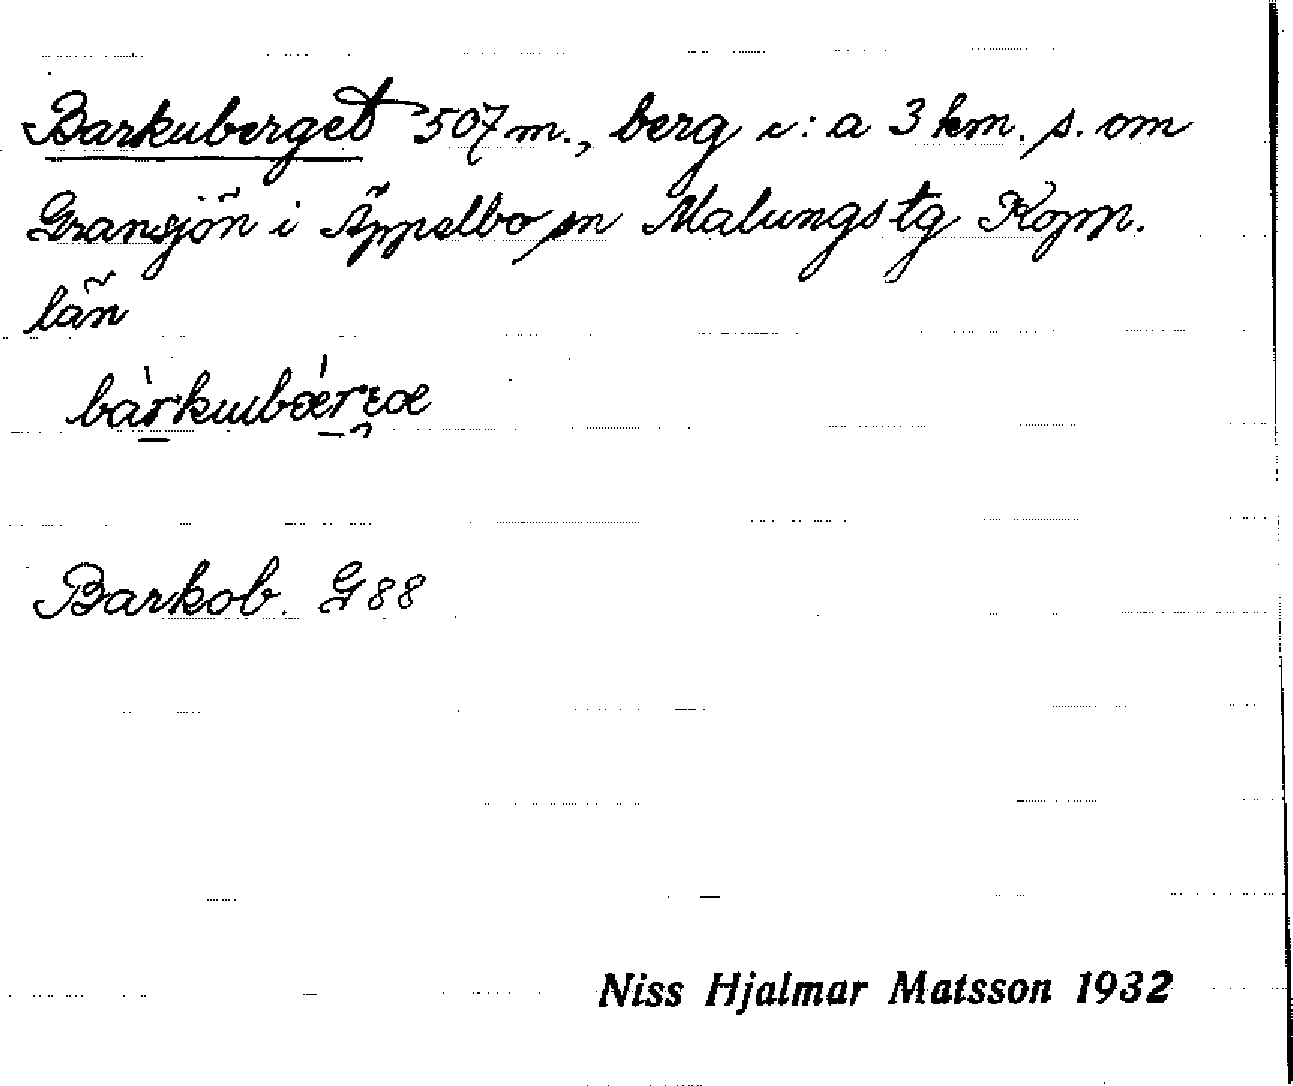 Barkuberget 507 m., berg c:a 3 km. s. om
Gransjön i Äppelbo sn Malungs tg Kopp.
län
Barkob. G 88
Niss Hjalmar Matsson 1932